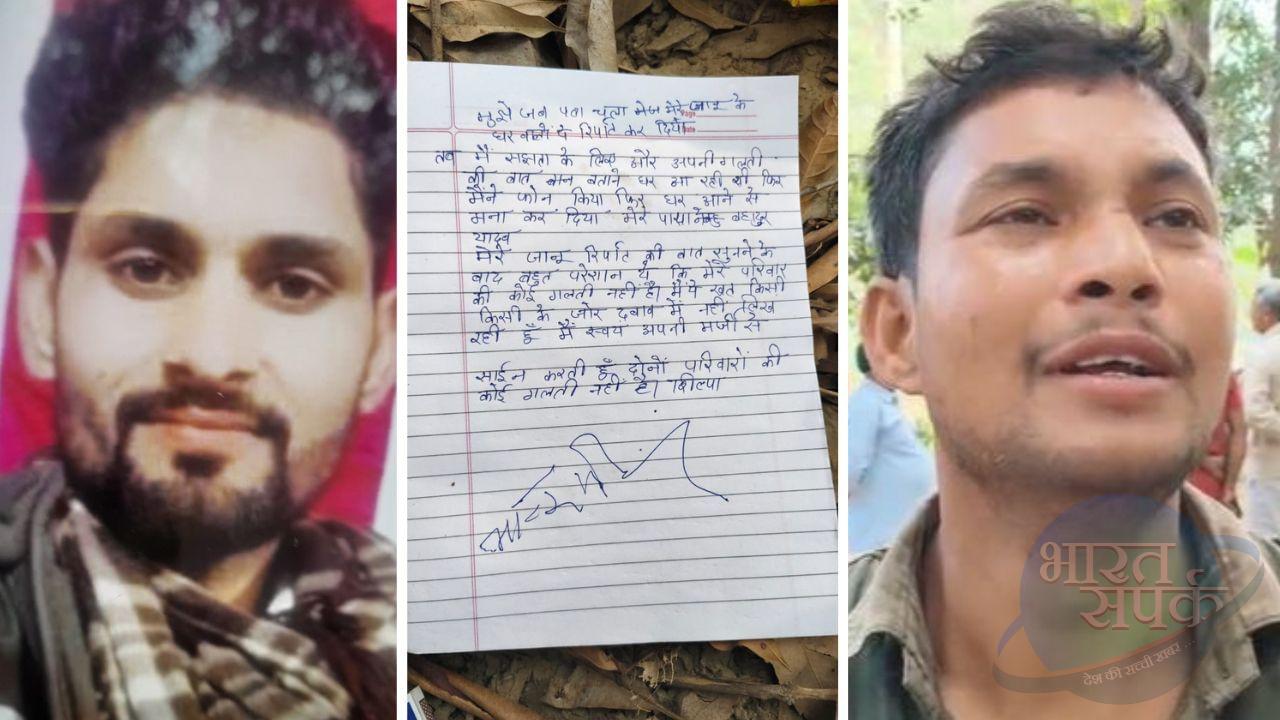 मुझे जब पता चला मेरे जान के
Page
घर वालो ने रिर्पाट कर दिया
Date
तब मैं सक्षता के लिए और अपनी गलती
की बात बताने घर आ रही थी फिर
मैने फोन किया फिर घर आने से
मना कर दिया मेरे पापा बहादुर
यादव
मेरे जान रिर्पाट की बात सुनने के
बाद बहुत परेशान थे कि मेरे परिवार
की कोई गलती नहीं है। मैं ये खत किसी
किसी के जोर दबाव में नहीं लिख
रही हूँ मैं स्वयं अपनी मर्जी से
साईन करती हूँ दोनों परिवारों की
कोई गलती नहीं है। शिल्पा
भारत
संपर्क
देश की सच्ची खबर ...